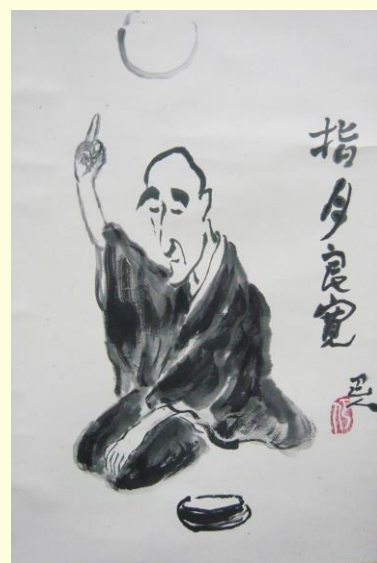 指月良寛